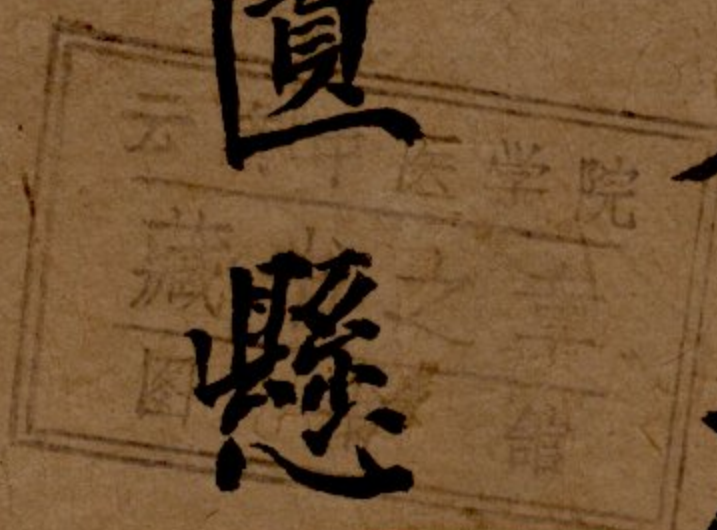 匱
懸
云南中医学院
藏书之章
图书馆